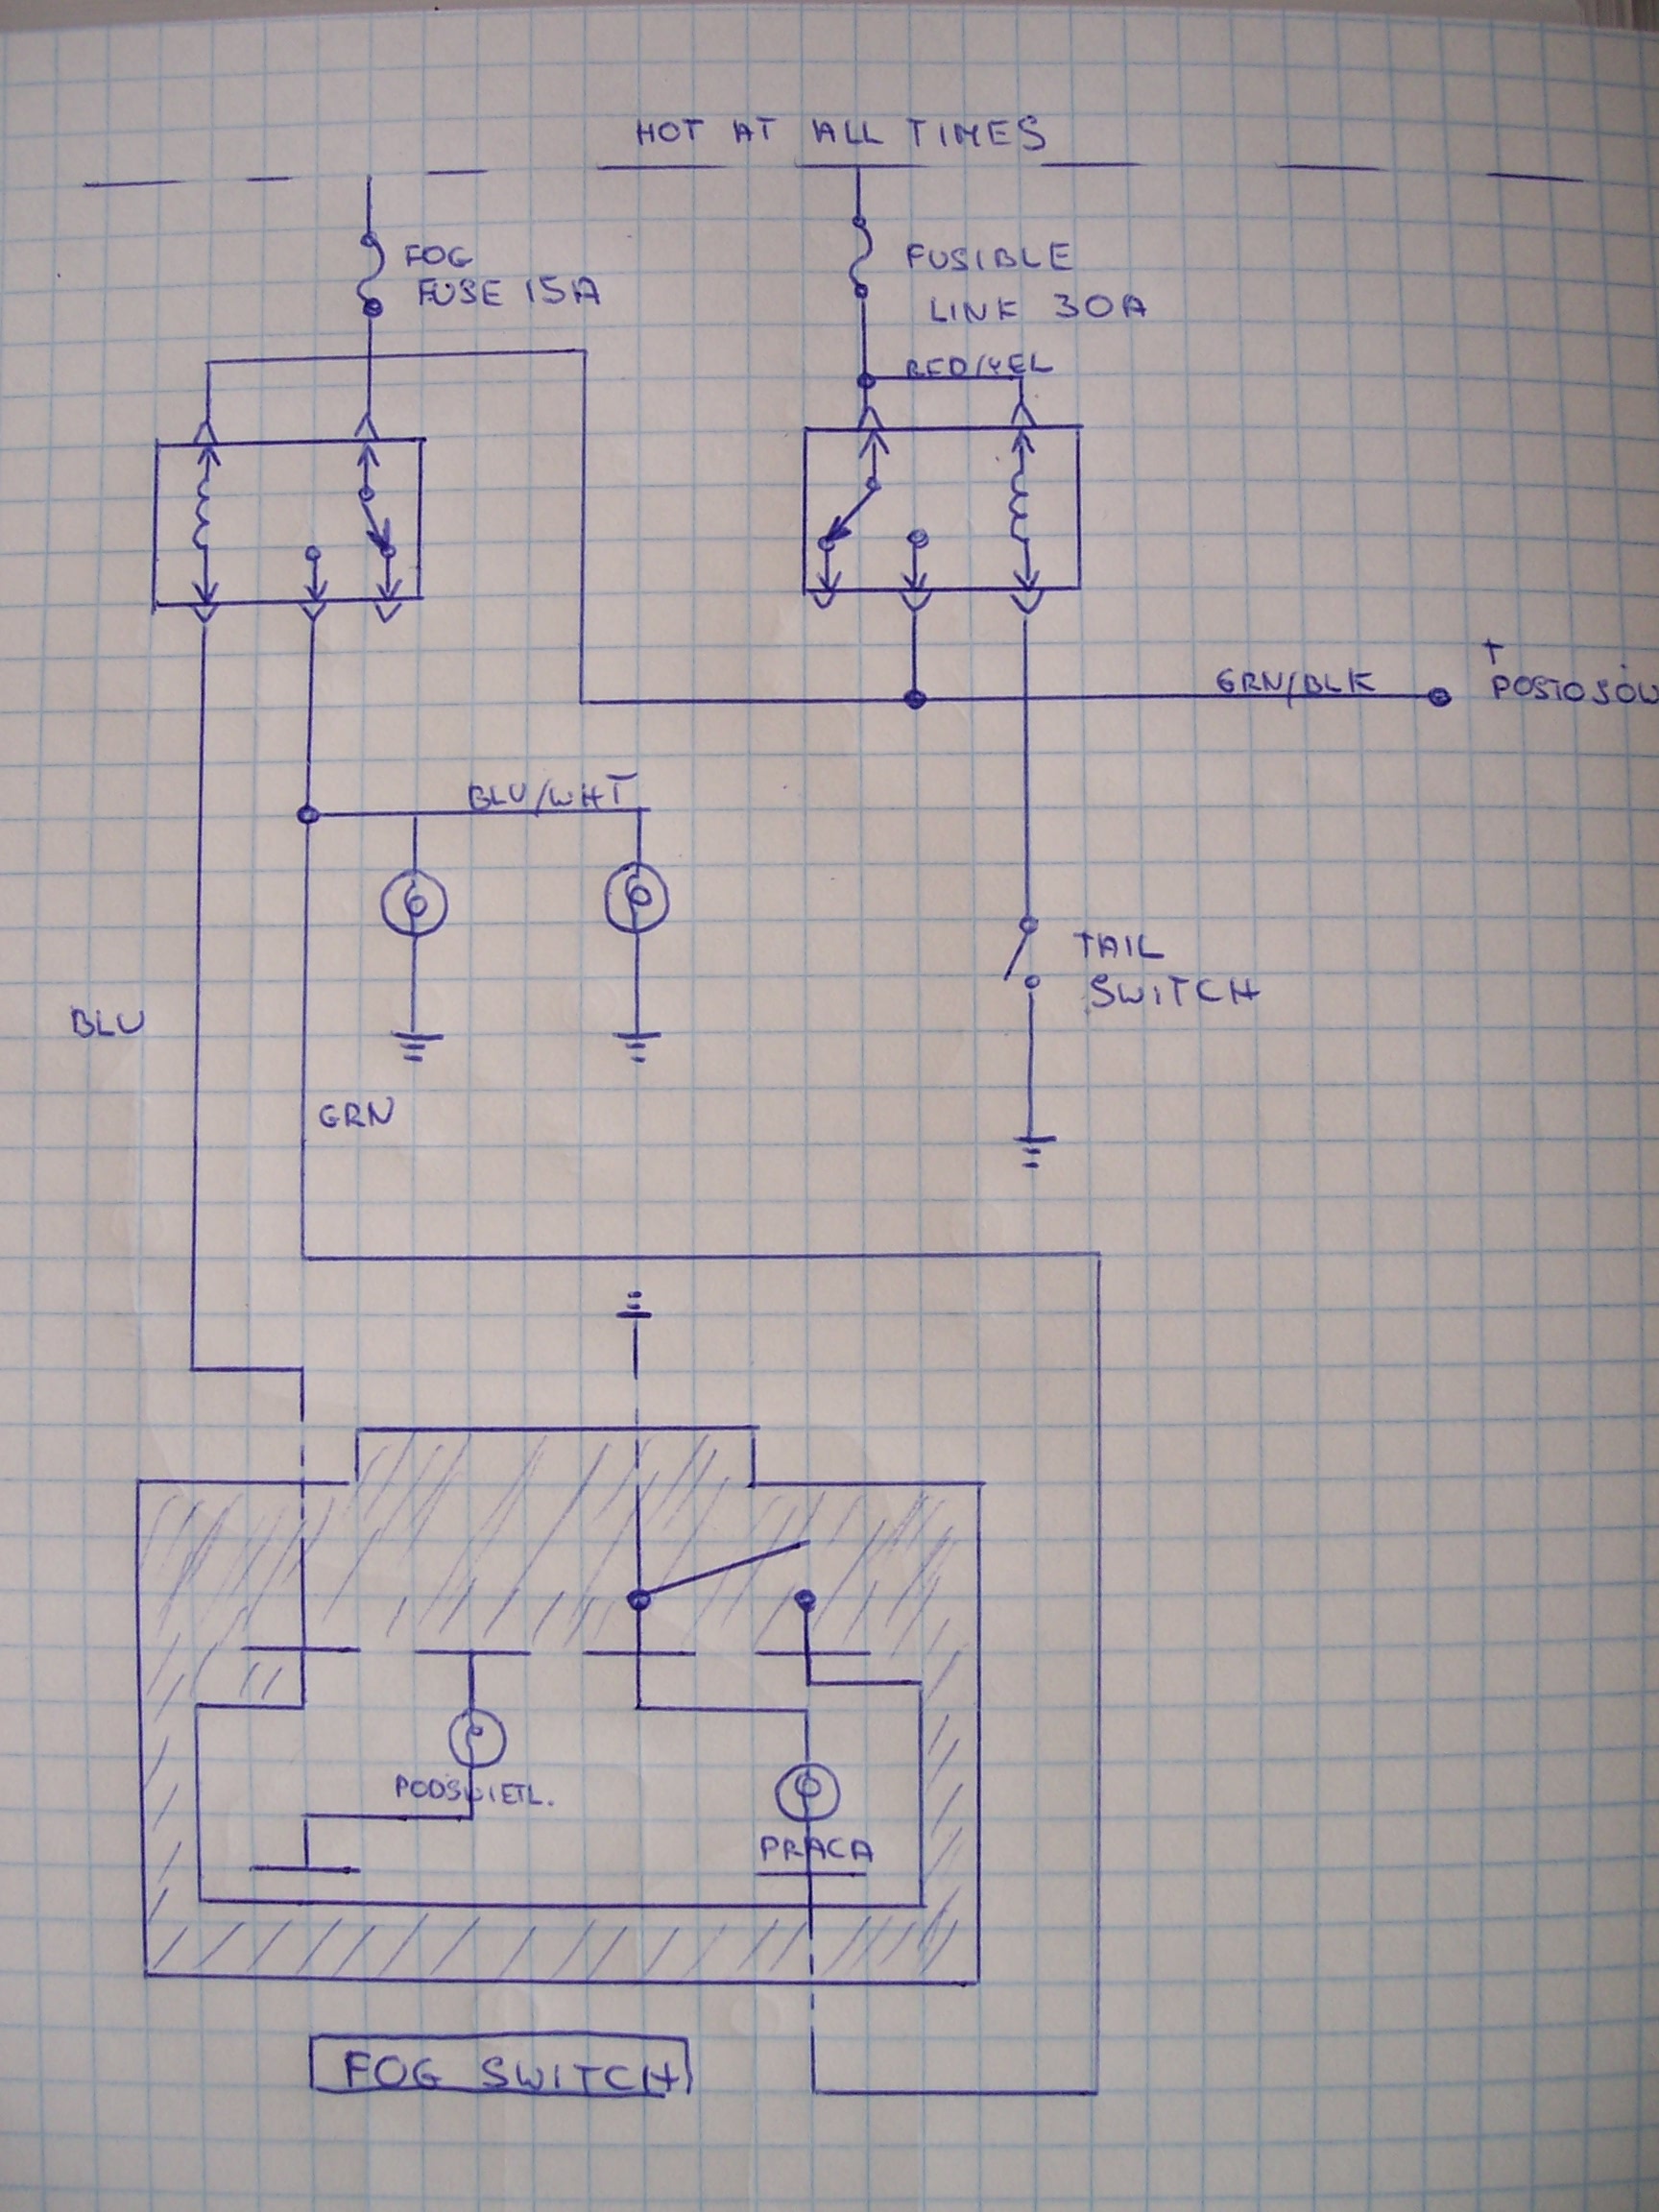 HOT AT ALL TIMES
FOG
FUSE 15A
FUSIBLE
LINK 30A
RED/YEL
GRN/BLK
+
BLU/WHT
TAIL
SWITCH
BLU
GRN
PODŚWIETL.
PRACA
FOG SWITCH